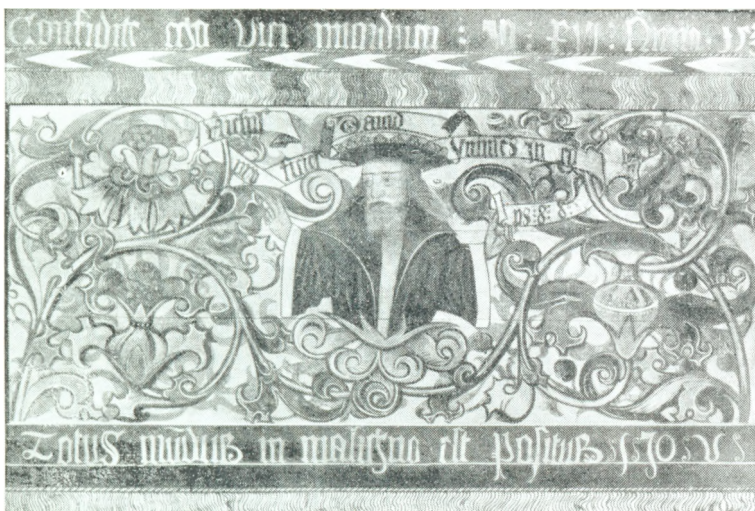 Confidite ego vici mundum : IO : XVI : Anno · 15
Dauid
in
ps : 8 : 8
Totus mūdus in maligno est positus 1 · IO · V